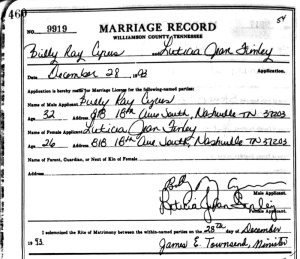 460
54
NO. 9919 MARRIAGE RECORD
WILLIAMSON COUNTY, TENNESSEE
Billy Ray Cyrus Leticia Jean Finley
Date December 28, 93 Application.
Application is hereby made for Marriage License for the following-named parties:
Name of Male Applicant Billy Ray Cyrus
Age 32 Address 818 18th Ave South, Nashville TN 37203
Name of Female Applicant Leticia Jean Finley
Age 26 Address 818 18th Ave South, Nashville TN 37203
Name of Parent, Guardian, or Next of Kin of Female
Address
Male Applicant.
Leticia Jean Finley
Female Applicant.
I solemnized the Rite of Matrimony between the within-named parties on the 28th day of December
1993. James E. Townsend, Minister